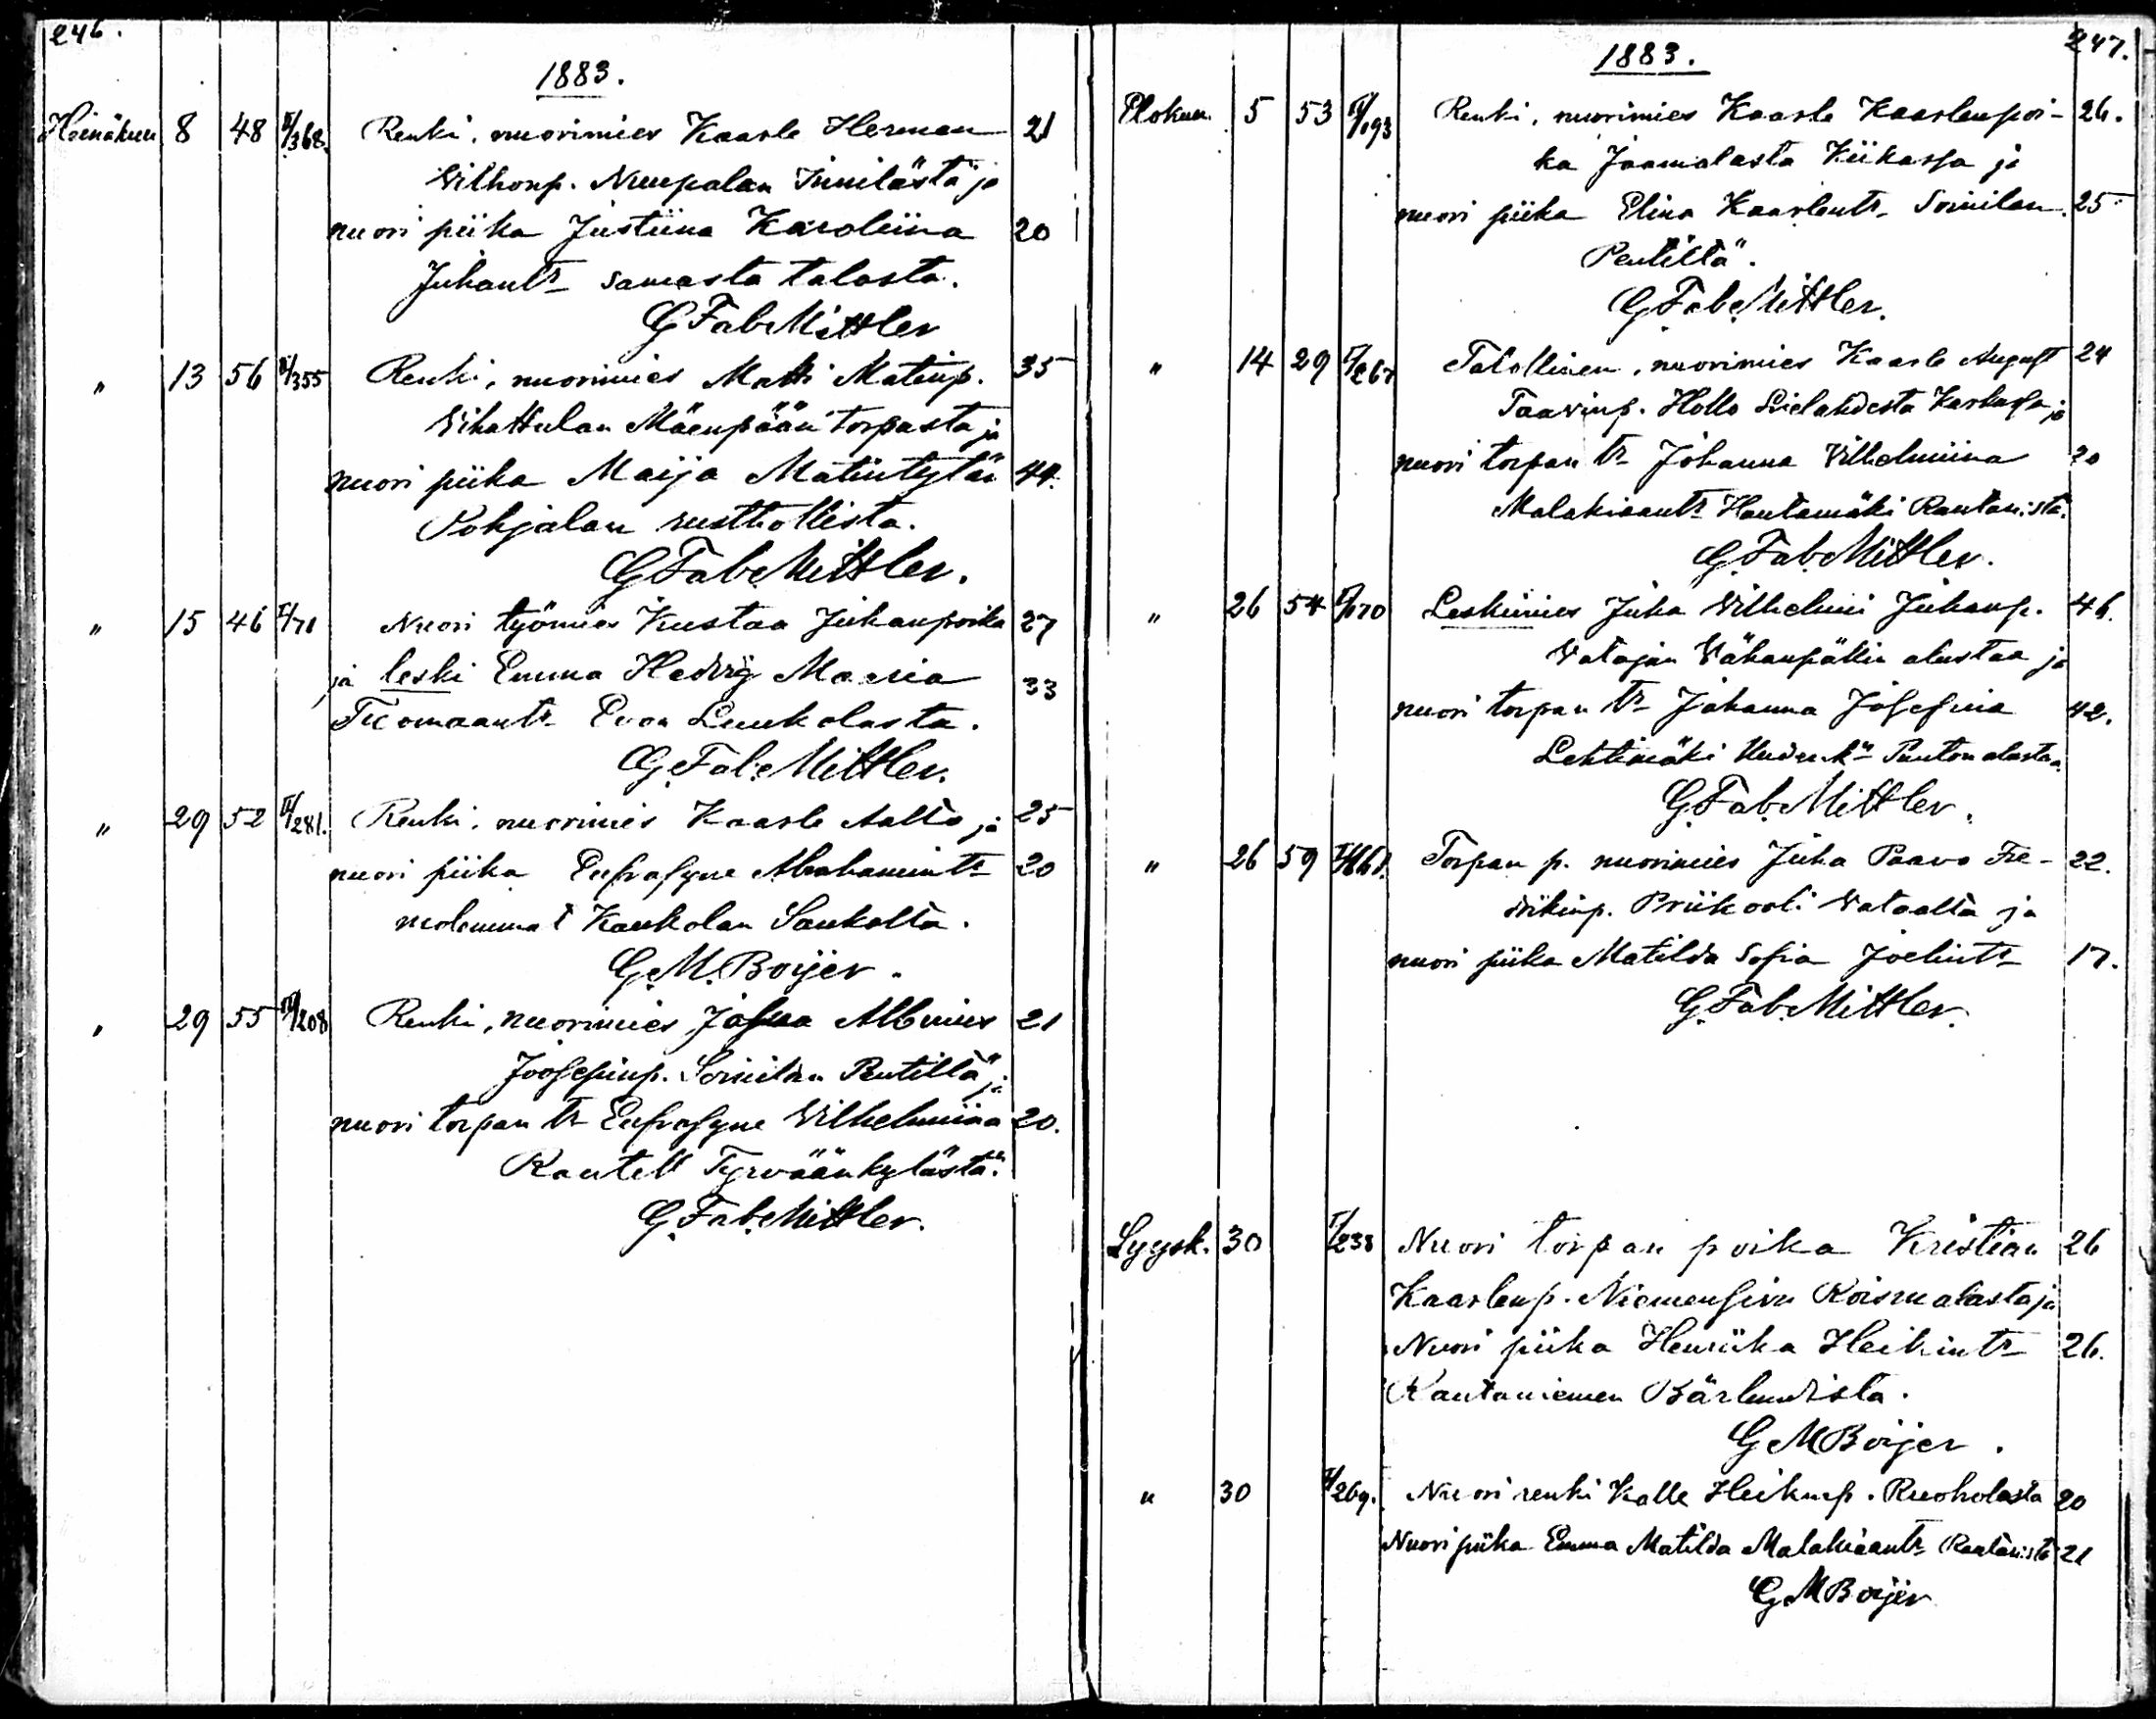 246.
1883.
Heinäkuu 8 48 II/368. Renki, nuorimies Kaarle Herman 21
Wilhonp. Nuupalan Innilästä ja
nuori piika Justiina Karoliina 20
Juhantr samasta talosta.
G Fab. Mittler
" 13 56 II/355 Renki, nuorimies Matti Matinp. 35
Vihattulan Mäenpään torpasta ja
nuori piika Maija Matintytär 44.
Pohjalan rusthollista.
G Fab. Mittler.
" 15 46 I/71 Nuori työmies Kustaa Juhanpoika 27
ja leski Emma Hedvig Maria 33
Tuomaantr Evon Luukolasta.
G. Fab. Mittler.
" 29 52 II/281. Renki, nuorimies Kaarle Aalto ja 25
nuori piika Eufrosyne Abrahamintr 20
molemmat Kaukolan Saukolta.
G. M. Boijer.
" 29 55 II/208 Renki, nuorimies Josua Albinus 21
Joosepinp. Soinilan Pentiltä ja
nuori torpan tr Eufrosyne Vilhelmiina 20.
Rautell Tyrväänkylästä.
G. Fab. Mittler.
247.
1883.
Elokuu. 5 53 II/193 Renki, nuorimies Kaarle Kaarlenpoi- 26.
ka Jaamalasta Kiikassa ja
nuori piika Elina Kaarlentr Soinilan 25
Pentiltä.
G. Fab. Mittler.
" 14 29 I/267 Talollinen, nuorimies Kaarle August 24
Taavinp. Hollo Lielahdesta Karkussa ja
nuori torpan tr Johanna Vilhelmiina 20
Malakiaantr Hautamäki Rautanista.
G. Fab. Mittler.
" 26 54 II/170 Leskimies Juha Vilhelmi Juhanp. 46.
Vatajan Vähäupällin alustaa ja
nuori torpan tr Johanna Josefina 42.
Lehtimäki Uudenkn Puntun alustaa.
G. Fab. Mittler.
" 26 59 Torpan p. nuorimies Juha Paavo Fre- 22.
drikinp. Priikooli Vataalta ja
nuori piika Matilda Sofia Joelintr 17.
G. Fab. Mittler.
Syysk. 30 I/238 Nuori torpan poika Kristian 26
Kaarlenp. Niemensivu Roismalasta ja
Nuori piika Henriika Heikintr 26.
Rautaniemen Bärlundista.
G M Boijer.
" 30 II/269. Nuori renki Kalle Heikinp. Ruoholasta 20
Nuori piika Emma Matilda Malakiaantr Rautanista 21
G M Boijer